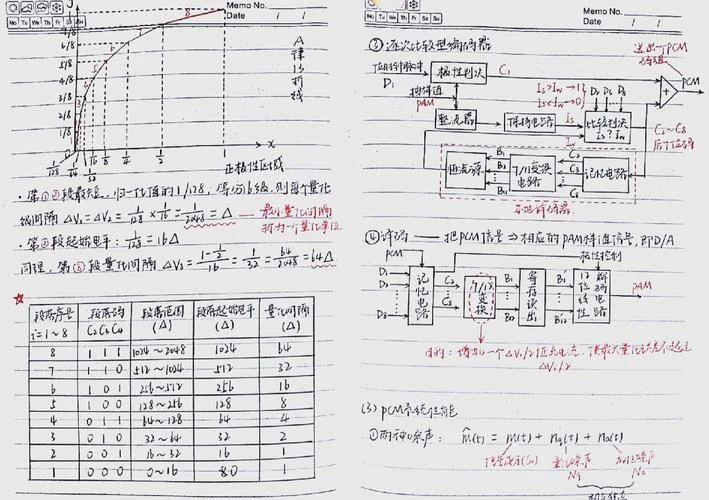 Memo No.
Mo Tu We Th Fr Sa Su
Date / /
6/8
5/8
4/8
3/8
2/8
1/8
0
A律13折线
1/128 1/64 1/32 1/16 1/8 1/4 1/2 1 x
正极性区域
·第①②段最短,归一化值的1/128,等分16级,则每个量化
级间隔 ΔV₁=ΔV₂= 1/128 × 1/16 = 1/2048 = Δ — 最小量化间隔
称为一个量化单位
·第②段起始电平: 1/128 = 16Δ
同理,第⑧段量化间隔 ΔV₈ = (1-1/2)/16 = 1/32 = 64/2048 = 64Δ
段落序号 i=1~8 段落码 C₂C₃C₄ 段落范围(Δ) 段落起始电平(Δ) 量化间隔(Δ)
8 1 1 1 1024~2048 1024 64
7 1 1 0 512~1024 512 32
6 1 0 1 256~512 256 16
5 1 0 0 128~256 128 8
4 0 1 1 64~128 64 4
3 0 1 0 32~64 32 2
2 0 0 1 16~32 16 1
1 0 0 0 0~16 0 1
Memo No.
Mo Tu We Th Fr Sa Su
Date / /
③逐次比较型编码器
送出一个PCM
码组
D₁
极性判决
C₁
抽样值
PAM
PCM
+
Is>Iw→1
Is<Iw→0
整流器
保持电路
Is
比较判决
Is?Iw
C₂~C₈
后7位码
Iw
恒流源
7/11变换电路
记忆电路
本地译码器
④译码 — 把PCM信号⇒相应的PAM样值信号,即D/A
PCM
极性控制
D₁
D₂
D₈
记忆电路
C₂
C₈
7/12变换
B₁
B₁₂
寄存读出
B₁
B₁₂
12位线性解码电路
PAM
目的:增加一个ΔVᵢ/2恒流电流,使最大量化误差不超过
ΔVᵢ/2
(3) PCM系统性能
①两种噪声: m̂(t) = m(t) + nq(t) + ne(t)
量化噪声
Nq